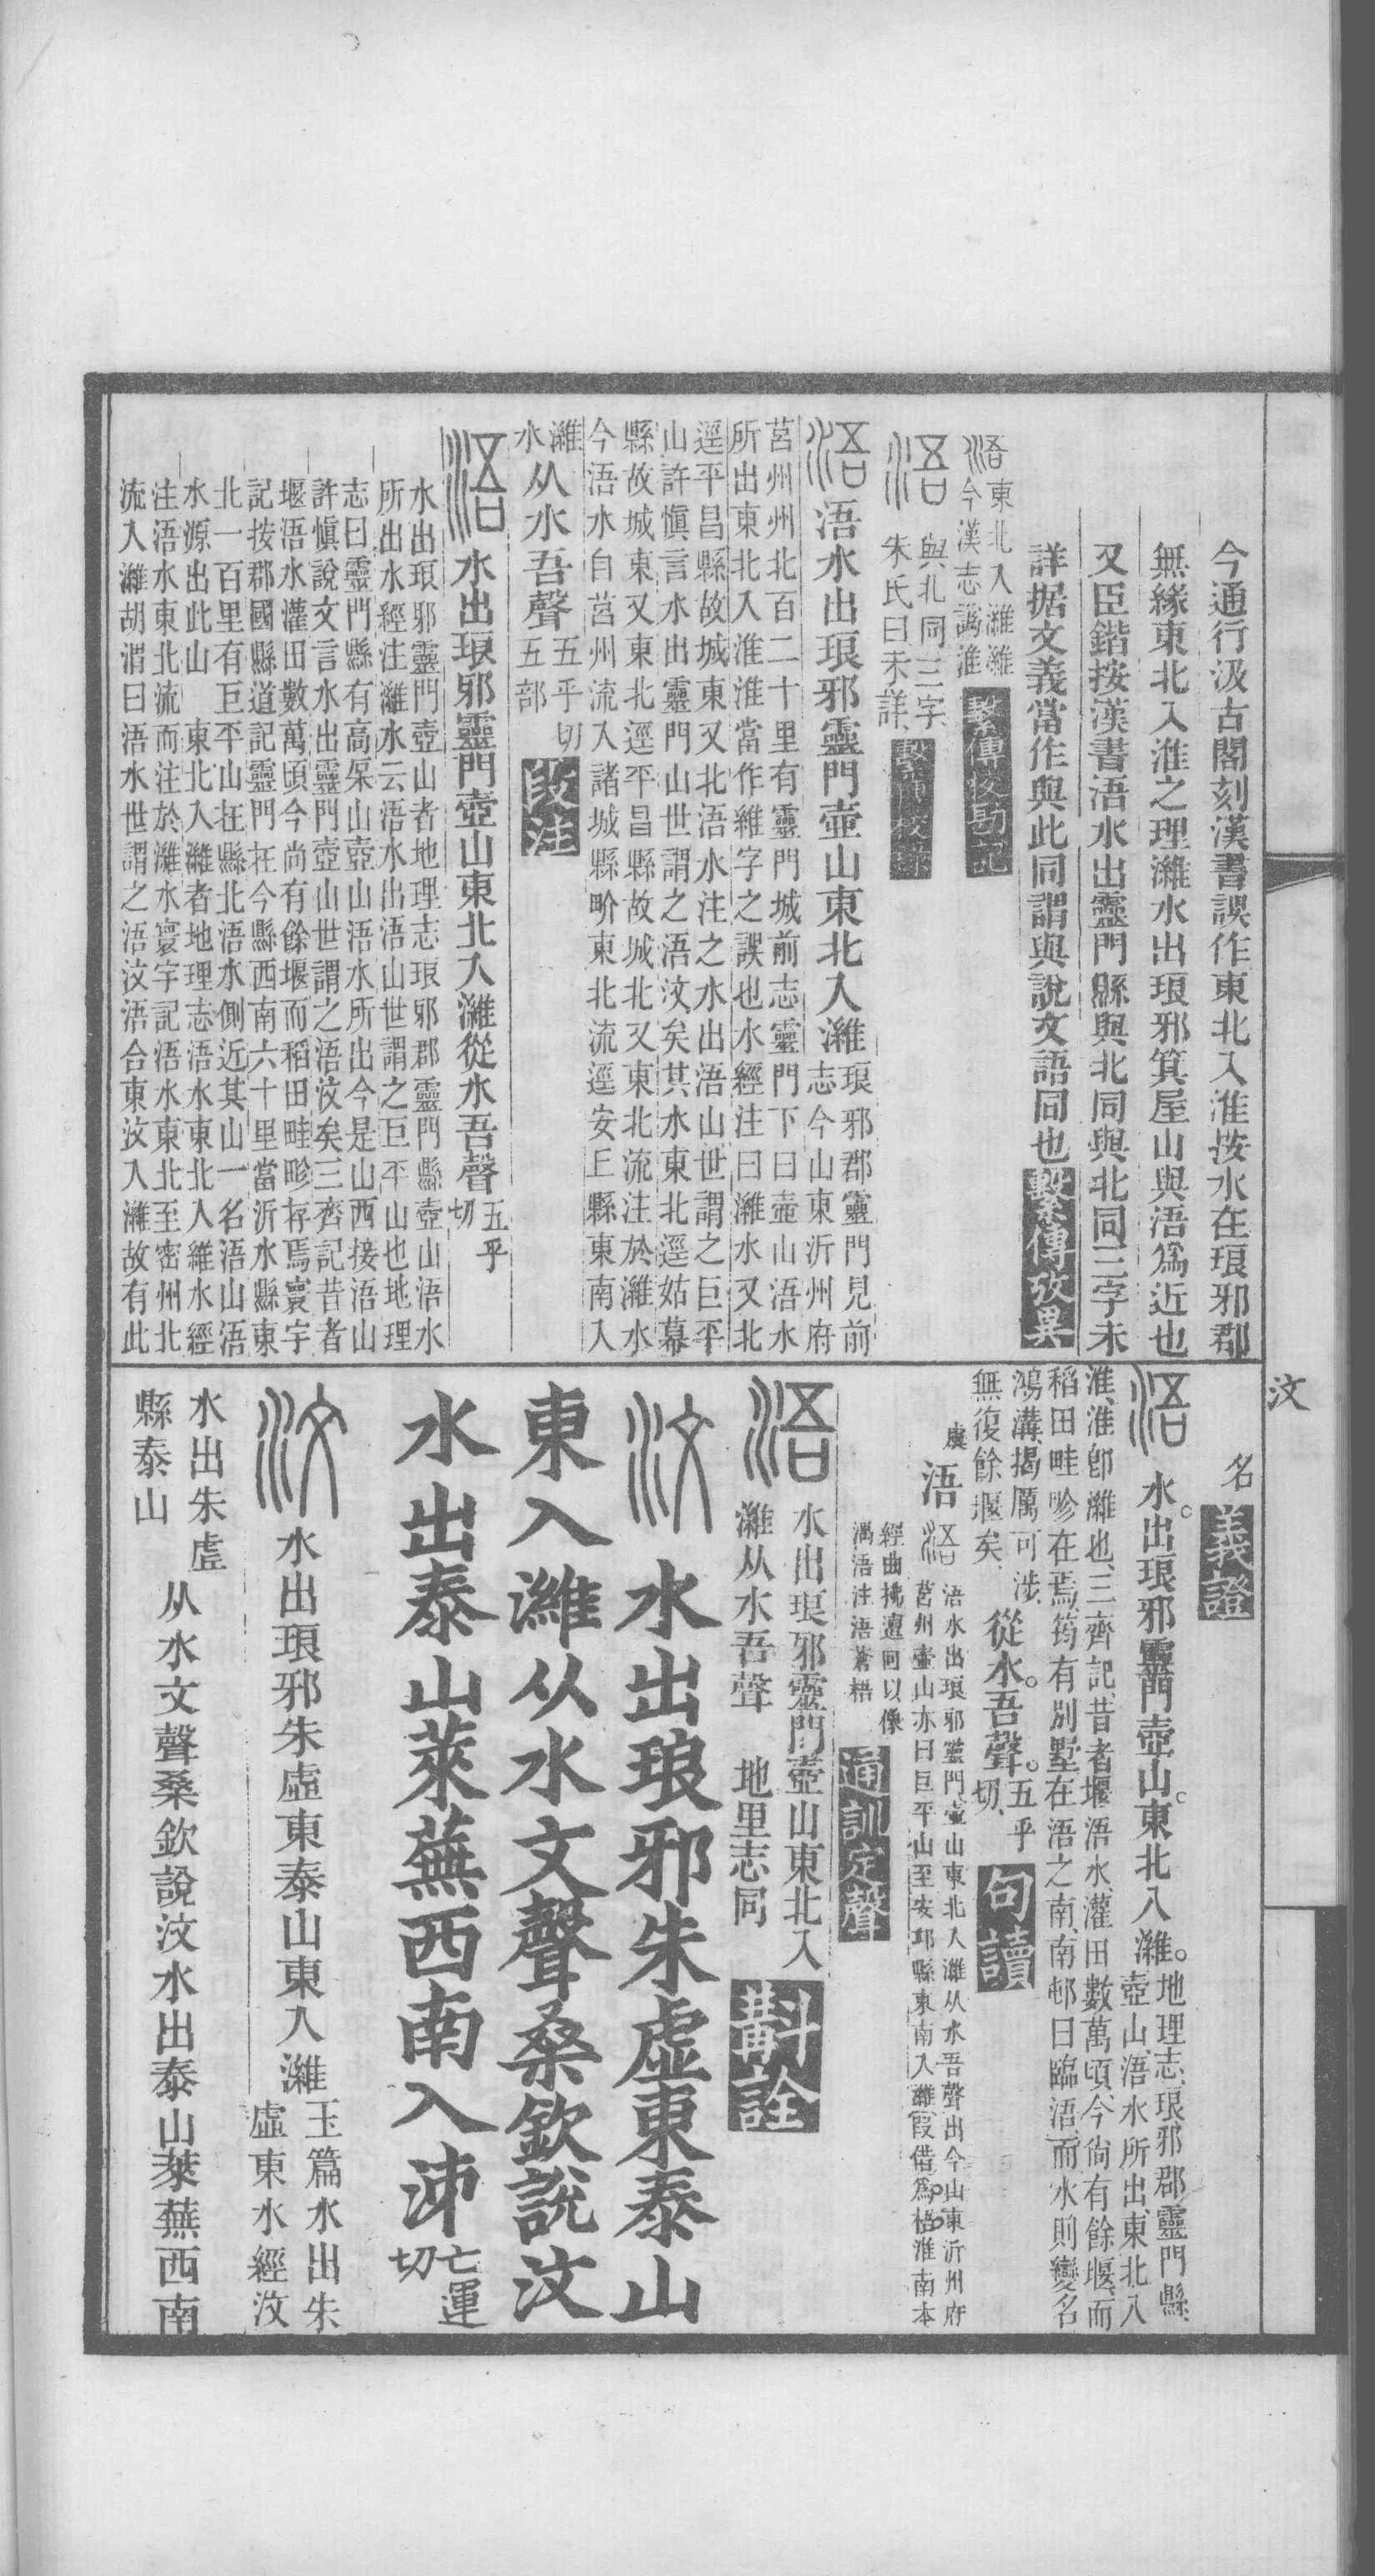 今通行汲古閣刻漢書誤作東北入淮按水在琅邪郡
無緣東北入淮之理濰水出琅邪箕屋山與浯爲近也
又臣鍇按漢書浯水出靈門縣與北同與北同三字未
詳据文義當作與此同謂與說文語同也繫傳攷異
浯東北入濰濰
今漢志譌淮繫傳校勘記
浯與北同三字、
朱氏曰未詳、
浯浯水出琅邪靈門壺山東北入濰琅邪郡靈門見前
志今山東沂州府
莒州州北百二十里有靈門城前志靈門下曰壺山浯水
所出東北入淮淮當作維字之誤也水經注曰濰水又北
逕平昌縣故城東又北浯水注之水出浯山世謂之巨平
山許愼言水出靈門山世謂之浯汶矣其水東北逕姑幕
縣故城東又東北逕平昌縣故城北又東北流注於濰水
今浯水自莒州流入諸城縣畍東北流逕安丘縣東南入
濰
水从水吾聲五乎切
五部段注
浯水出琅邪靈門壺山東北入濰從水吾聲五乎
切
水出琅邪靈門壺山者地理志琅邪郡靈門縣壺山浯水
所出水經注濰水云浯水出浯山世謂之巨平山也地理
志曰靈門縣有高㞗山壺山浯水所出今是山西接浯山
許愼說文言水出靈門壺山世謂之浯汶矣三齊記昔者
堰浯水灌田數萬頃今尚有餘堰而稻田畦畛存焉寰宇
記按郡國縣道記靈門在今縣西南六十里當沂水縣東
北一百里有巨平山在縣北浯水側近其山一名浯山浯
水源出此山　東北入濰者地理志浯水東北入維水經
注浯水東北流而注於濰水寰宇記浯水東北至密州北
流入濰胡渭曰浯水世謂之浯汶浯合東汶入濰故有此
汶
名義證
浯水。出琅邪靈門壺山。東北入濰。地理志、琅邪郡靈門縣、
壺山、浯水所出、東北入
淮、淮卽濰也、三齊記、昔者堰浯水、灌田數萬頃、今尚有餘堰、而
稻田畦畛在焉、筠有別墅在浯之南、南邨曰臨浯、而水則變名
鴻溝、揭厲可涉、
無復餘堰矣、從水。吾聲。五乎
切、句讀
虞浯浯浯水出琅邪靈門壺山東北入濰从水吾聲出今山東沂州府
莒州壺山亦曰巨平山至安邱縣東南入濰〔叚借〕爲梧淮南本
經曲拂邅回以像
湡浯注浯蒼梧通訓定聲
浯水出琅邪靈門壺山東北入
濰从水吾聲　地里志同斠詮
汶水出琅邪朱虛東泰山
東入濰从水文聲桑欽說汶
水出泰山萊蕪西南入泲亡運
切
汶水出琅邪朱虛東泰山東入濰玉篇水出朱
虛東水經汶
水出朱虛
縣泰山从水文聲桑欽說汶水出泰山萊蕪西南